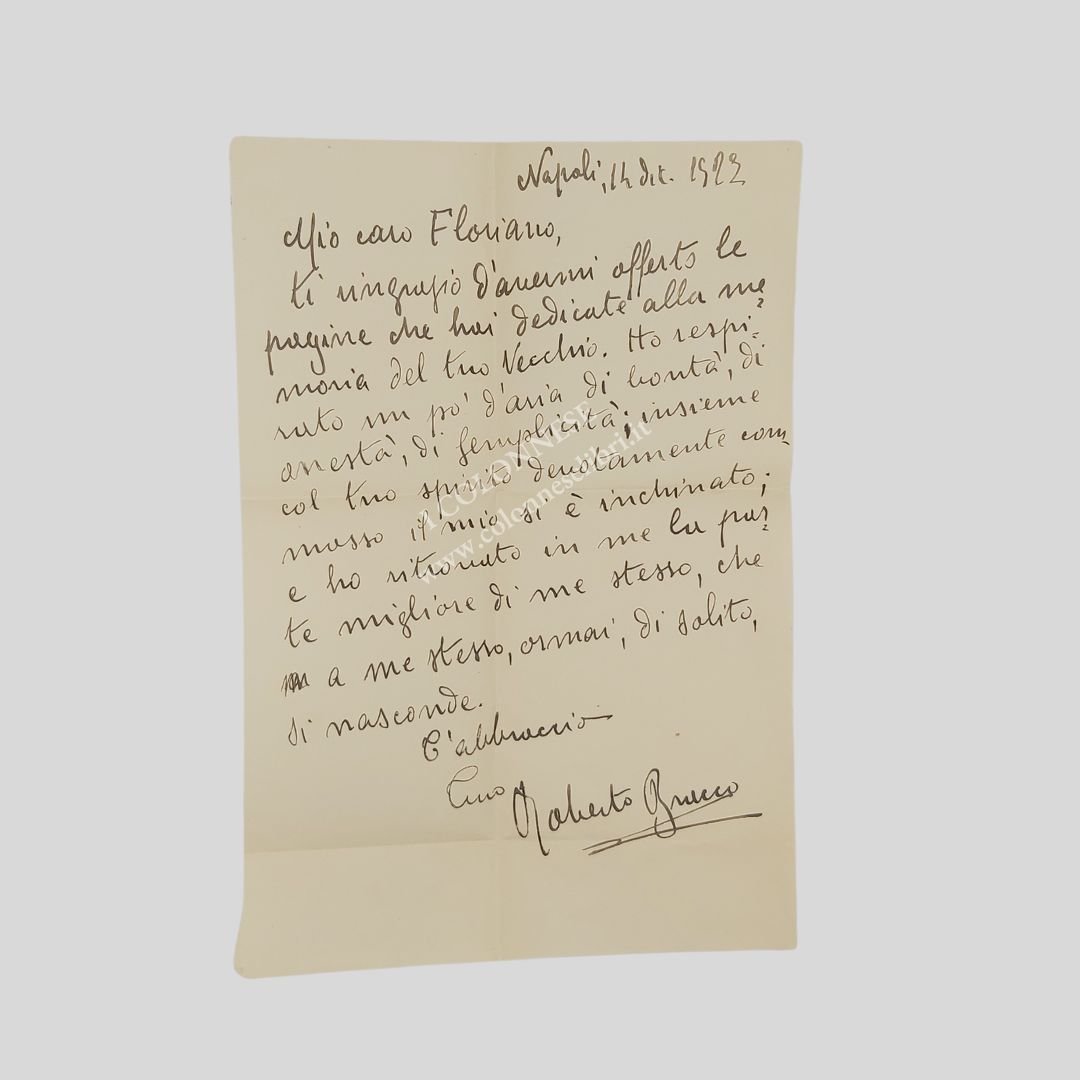 Napoli, 14 dic. 1923
Mio caro Floriano,
ti ringrazio d'avermi offerto le
pagine che hai dedicate alla me=
moria del tuo Vecchio. Ho respi=
rato un po' d'aria di bontà, di
onestà, di semplicità; insieme
col tuo spirito devotamente com=
mosso il mio si è inchinato;
e ho ritrovato in me la par=
te migliore di me stesso, che
a me stesso, ormai, di solito,
si nasconde.
T'abbraccio
Tuo Roberto Bracco
COLONNESE
www.colonneselibri.it